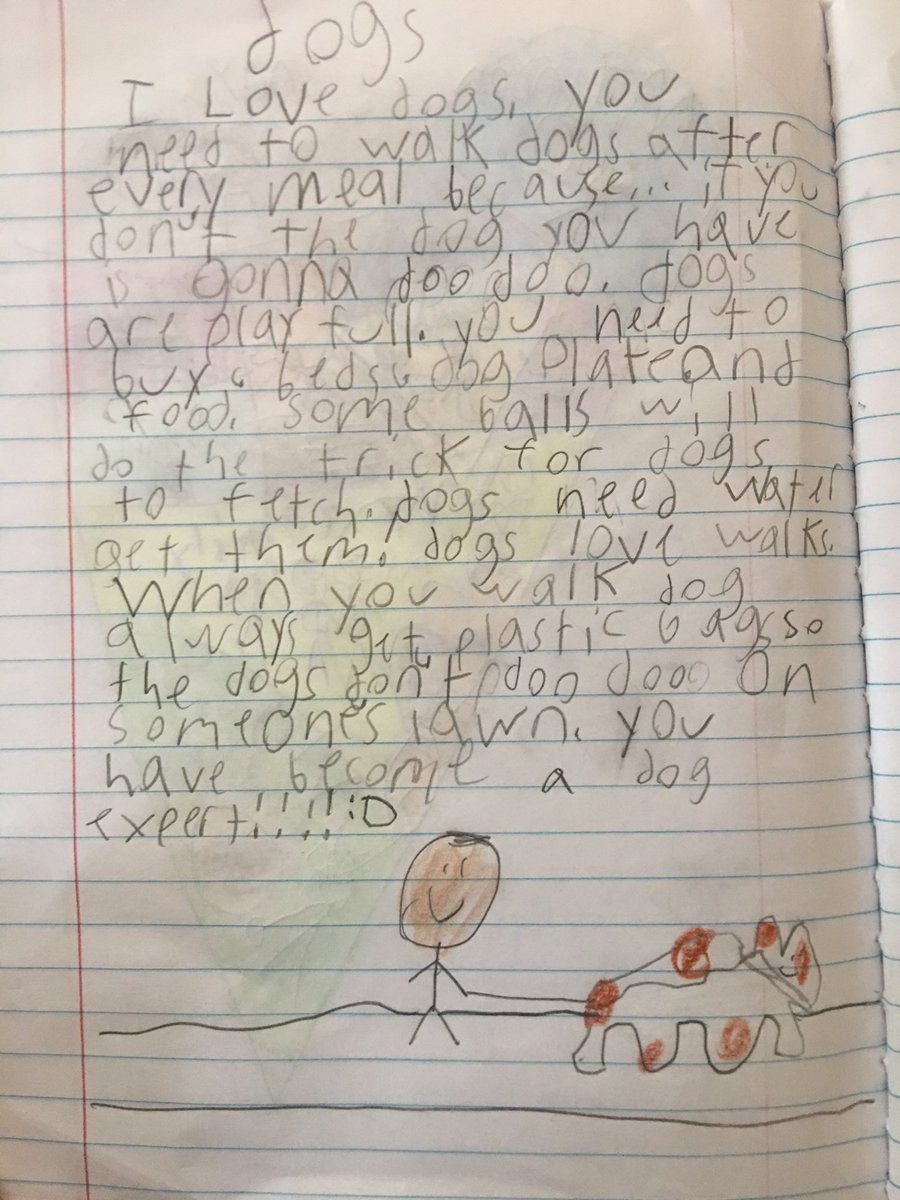 dogs
I Love dogs. you
need to walk dogs after
every meal because... if you
don't the dog you have
is gonna doo doo. dogs
are play full. you need to
buy a beds, dog plate and
food. some balls will
do the trick for dogs
to fetch. dogs need water
get them! dogs love walks.
When you walk dog
always get plastic bags so
the dogs don't doo dooo On
someones lawn. you
have become a dog
expert!!!! :D